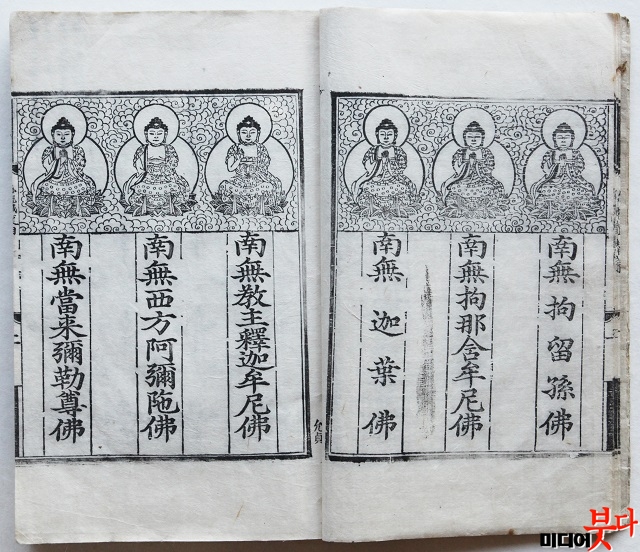 南無拘留孫佛
南無拘那含牟尼佛
南無迦葉佛
南無教主釋迦牟尼佛
南無西方阿彌陁佛
南無當來彌勒尊佛
미디어붓다